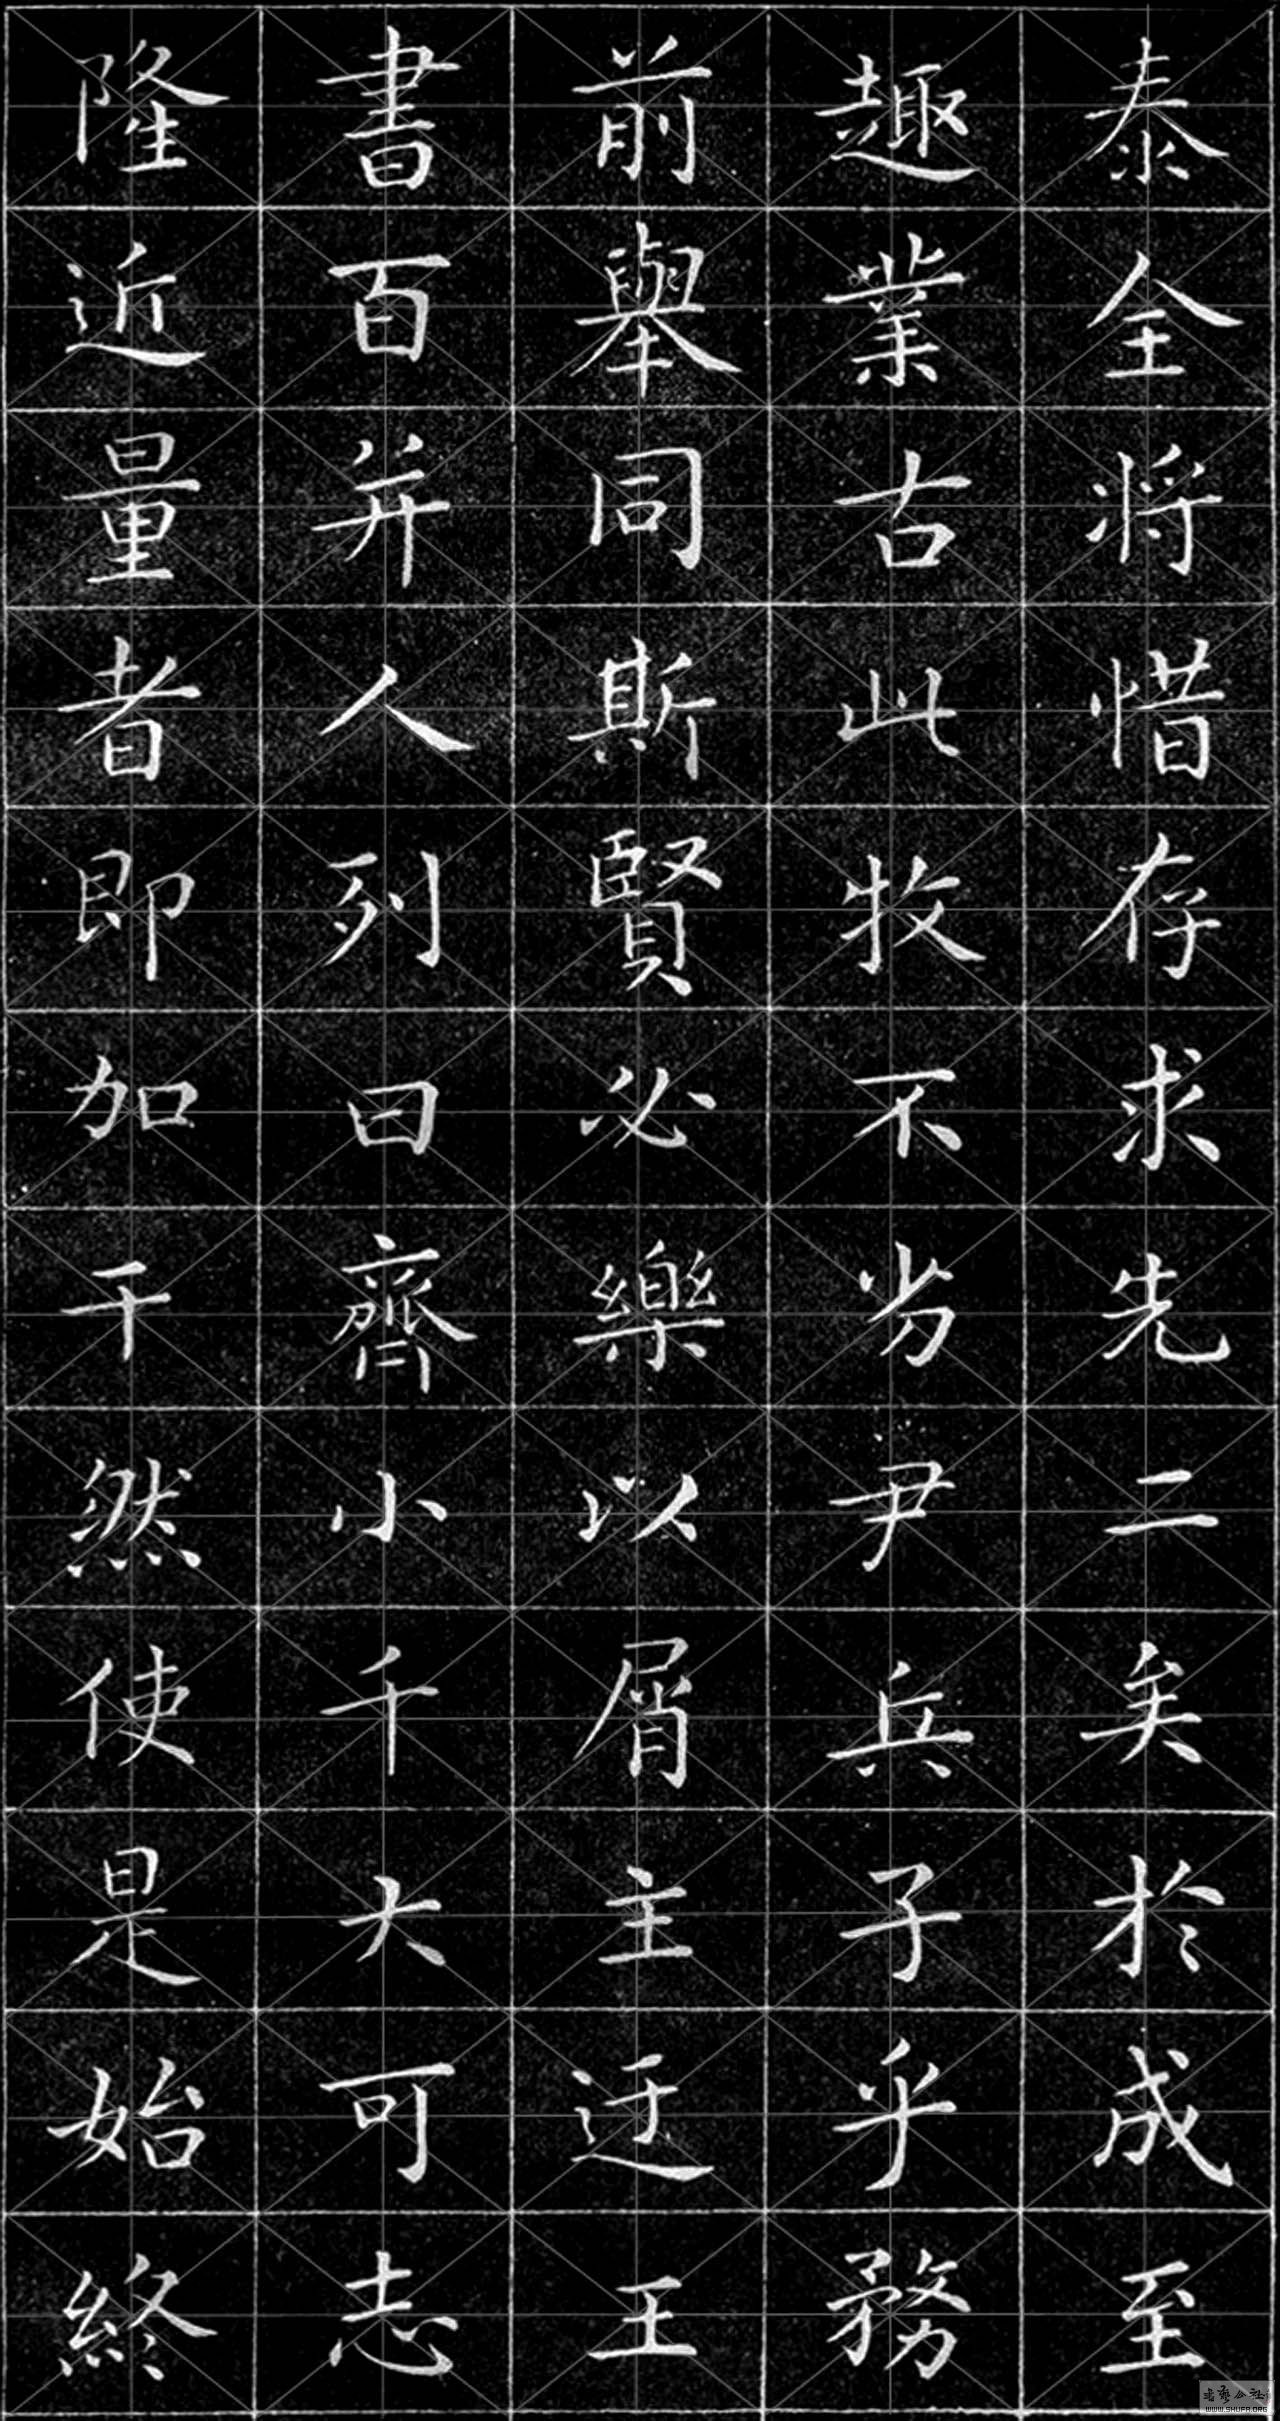 泰全將惜存求先二矣於成至
趣業古此牧不尚尹兵子乎務
前舉同斯賢必樂以屑主迂王
書百并人列曰齊小千大可志
隆近量者即加干然使是始終
书艺公社
WWW.SHUFA.ORG